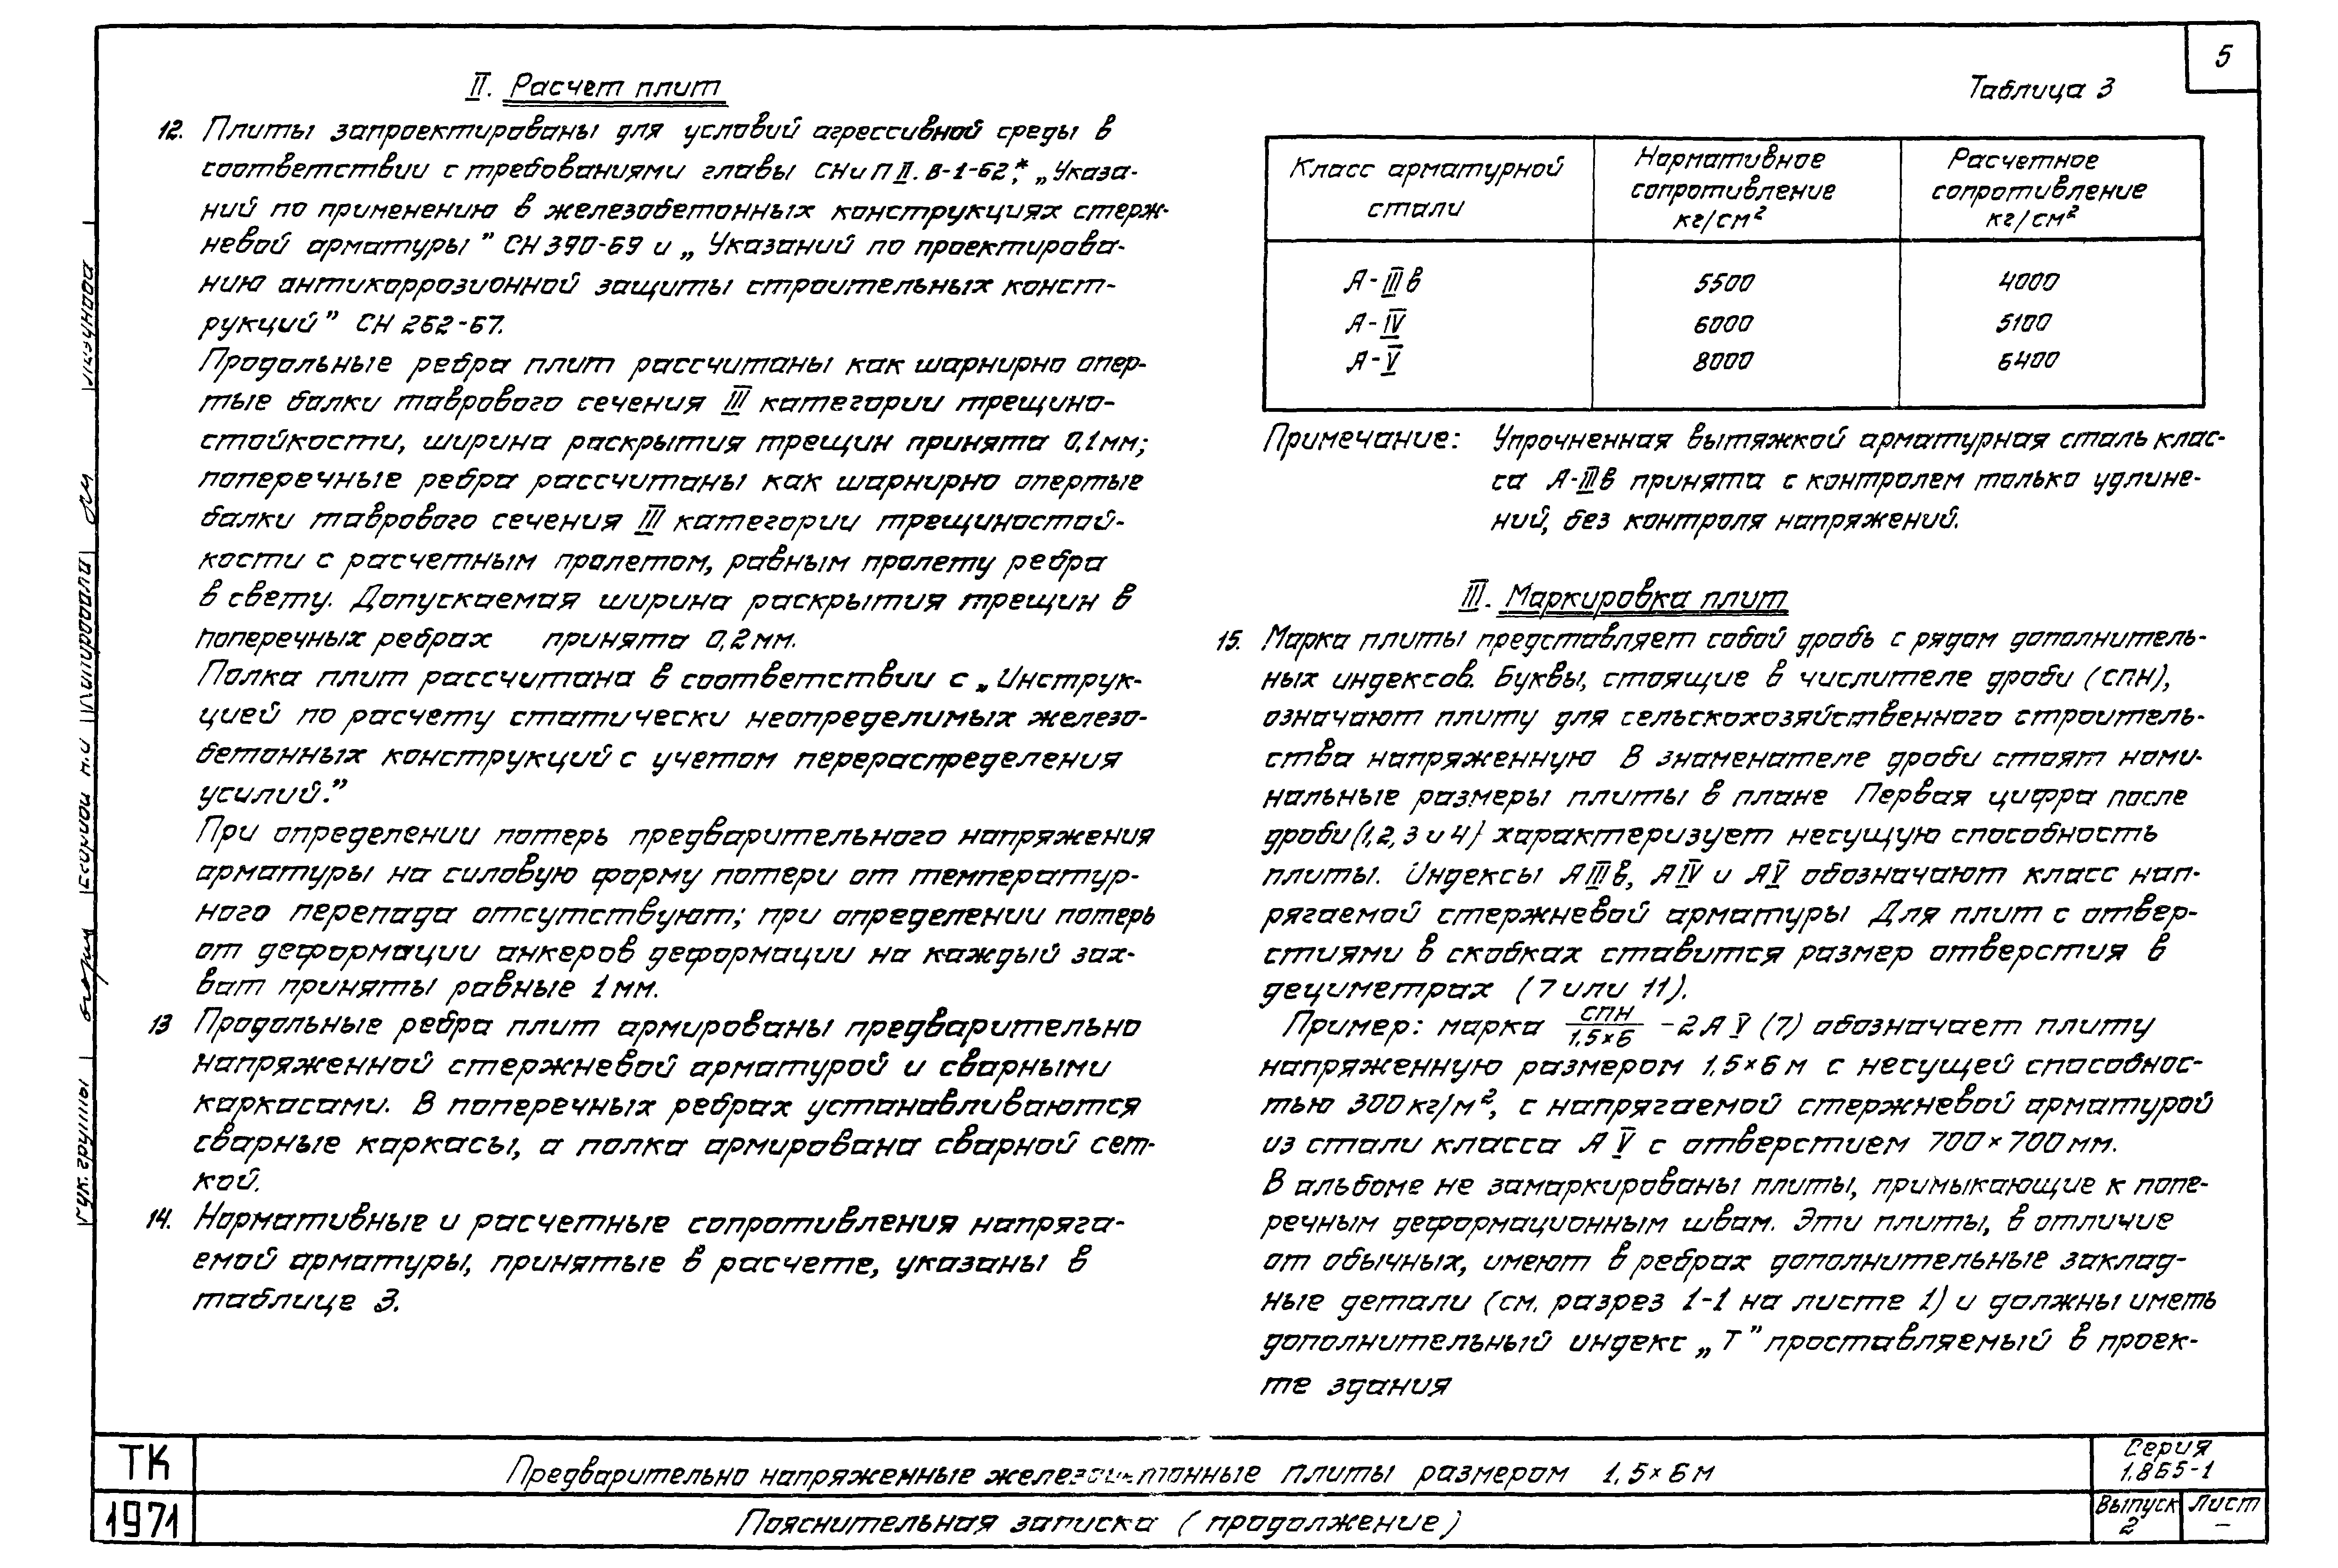 5
II. Расчет плит
12. Плиты запроектированы для условий агрессивной среды в
соответствии с требованиями главы СНиП II. В-1-62*, „Указа-
ний по применению в железобетонных конструкциях стерж-
невой арматуры" СН 390-69 и „Указаний по проектирова-
нию антикоррозионной защиты строительных конст-
рукций" СН 262-67.
Продольные ребра плит рассчитаны как шарнирно опер-
тые балки таврового сечения III категории трещино-
стойкости, ширина раскрытия трещин принята 0,1мм;
поперечные ребра рассчитаны как шарнирно опертые
балки таврового сечения III категории трещиностой-
кости с расчетным пролетом, равным пролету ребра
в свету. Допускаемая ширина раскрытия трещин в
поперечных ребрах принята 0,2мм.
Полка плит рассчитана в соответствии с „Инструк-
цией по расчету статически неопределимых железо-
бетонных конструкций с учетом перераспределения
усилий."
При определении потерь предварительного напряжения
арматуры на силовую форму потери от температур-
ного перепада отсутствуют; при определении потерь
от деформации анкеров деформации на каждый зах-
ват приняты равные 1мм.
13 Продольные ребра плит армированы предварительно
напряженной стержневой арматурой и сварными
каркасами. В поперечных ребрах устанавливаются
сварные каркасы, а полка армирована сварной сет-
кой.
14. Нормативные и расчетные сопротивления напряга-
емой арматуры, принятые в расчете, указаны в
таблице 3.
Таблица 3
Класс арматурной стали | Нормативное сопротивление кг/см² | Расчетное сопротивление кг/см²
А-IIIв 5500 4000
А-IV 6000 5100
А-V 8000 6400
Примечание: Упрочненная вытяжкой арматурная сталь клас-
са А-IIIв принята с контролем только удлине-
ний, без контроля напряжений.
III. Маркировка плит
15. Марка плиты представляет собой дробь с рядом дополнитель-
ных индексов. Буквы, стоящие в числителе дроби (СПН),
означают плиту для сельскохозяйственного строитель-
ства напряженную В знаменателе дроби стоят номи-
нальные размеры плиты в плане Первая цифра после
дроби (1,2,3 и 4) характеризует несущую способность
плиты. Индексы АIIIв, АIV и АV обозначают класс нап-
рягаемой стержневой арматуры Для плит с отвер-
стиями в скобках ставится размер отверстия в
дециметрах (7 или 11).
Пример: марка СПН/1,5×6 -2АV(7) обозначает плиту
напряженную размером 1,5×6м с несущей способнос-
тью 300кг/м², с напрягаемой стержневой арматурой
из стали класса АV с отверстием 700×700мм.
В альбоме не замаркированы плиты, примыкающие к попе-
речным деформационным швам. Эти плиты, в отличие
от обычных, имеют в ребрах дополнительные заклад-
ные детали (см. разрез 1-1 на листе 1) и должны иметь
дополнительный индекс „Т" проставляемый в проек-
те здания
ТК
1971
Предварительно напряженные железобетонные плиты размером 1,5×6м
Пояснительная записка (продолжение)
Серия
1.865-1
Выпуск Лист
2 –
Рук. группы